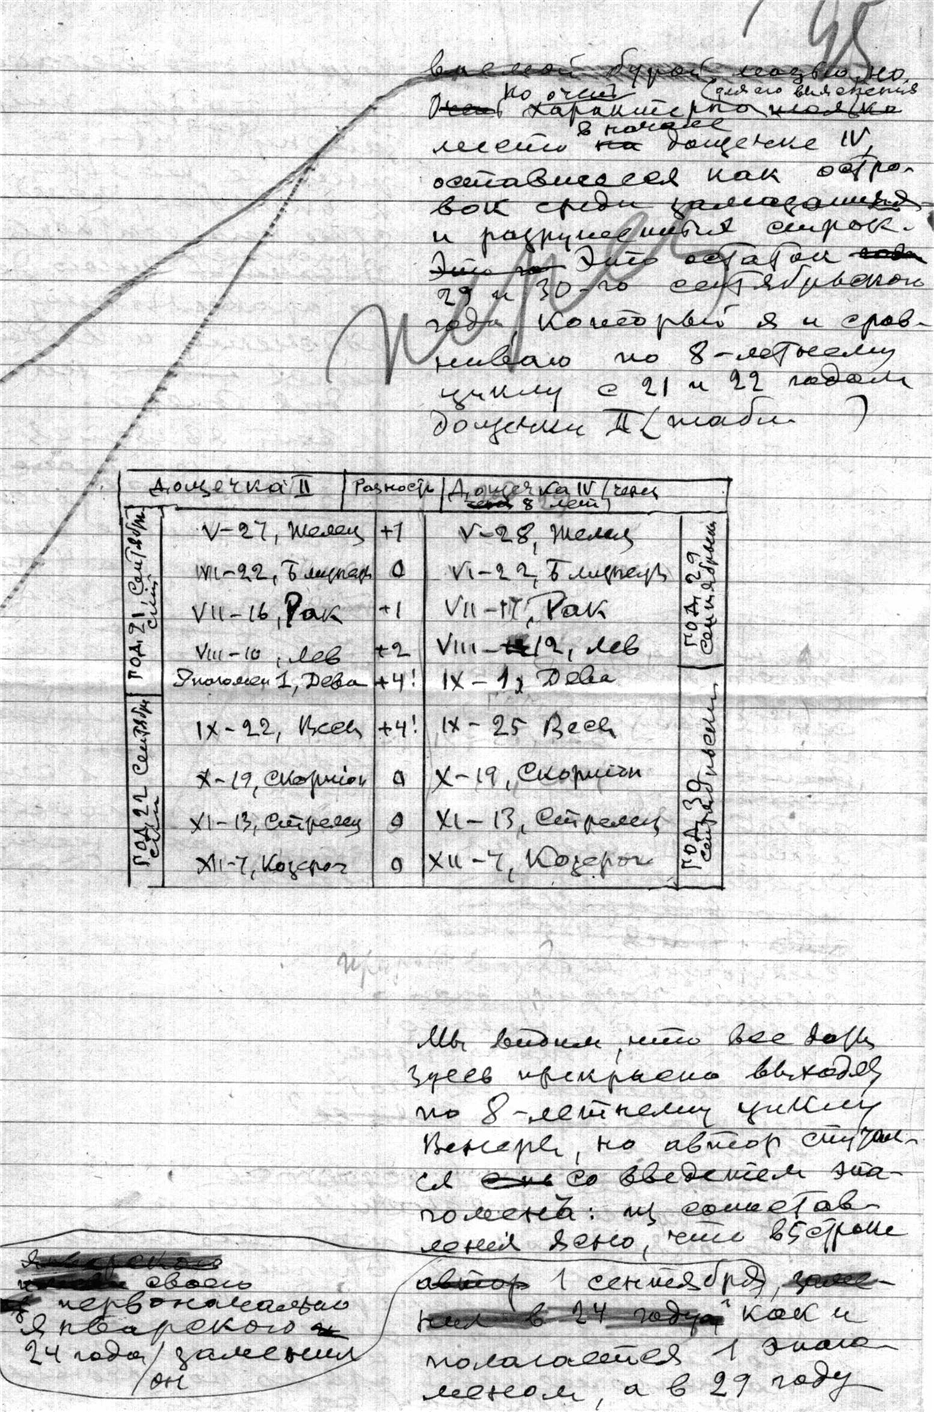 95
но очень (для его выяснения
характерно
в начале
место на дощечке IV,
оставшееся как остро-
вок среди замазанных
и разрушенных строк.
Это остаток
29 и 30-го сентябрьского
года, который я и срав-
ниваю по 8-летнему
циклу с 21 и 22 годом
дощечки II (табл. )
Дощечка II | Разность | Дощечка IV (через
8 лет)
Год 21 сентябрьский
V-27, Телец | +1 | V-28, Телец
VI-22, Близнецы | 0 | VI-22, Близнецы
VII-16, Рак | +1 | VII-17, Рак
VIII-10, Лев | +2 | VIII-12, Лев
Эпагомен 1, Дева | +4! | IX-1, Дева
Год 29 сентябрьский
Год 22 сентябрьский
IX-22, Весы | +4! | IX-25 Весы
X-19, Скорпион | 0 | X-19, Скорпион
XI-13, Стрелец | 0 | XI-13, Стрелец
XII-7, Козерог | 0 | XII-7, Козерог
Год 30 сентябрьский
Мы видим, что все даты
здесь прекрасно выходят
по 8-летнему циклу
Венеры, но автор спутал-
ся со введением эпа-
гомена: из сопостав-
ления ясно, что в 5 строке
автор 1 сентября,
как и
полагается 1 эпаго-
меном, а в 29 году
своего
первоначально
январского
24 года / заменил
он